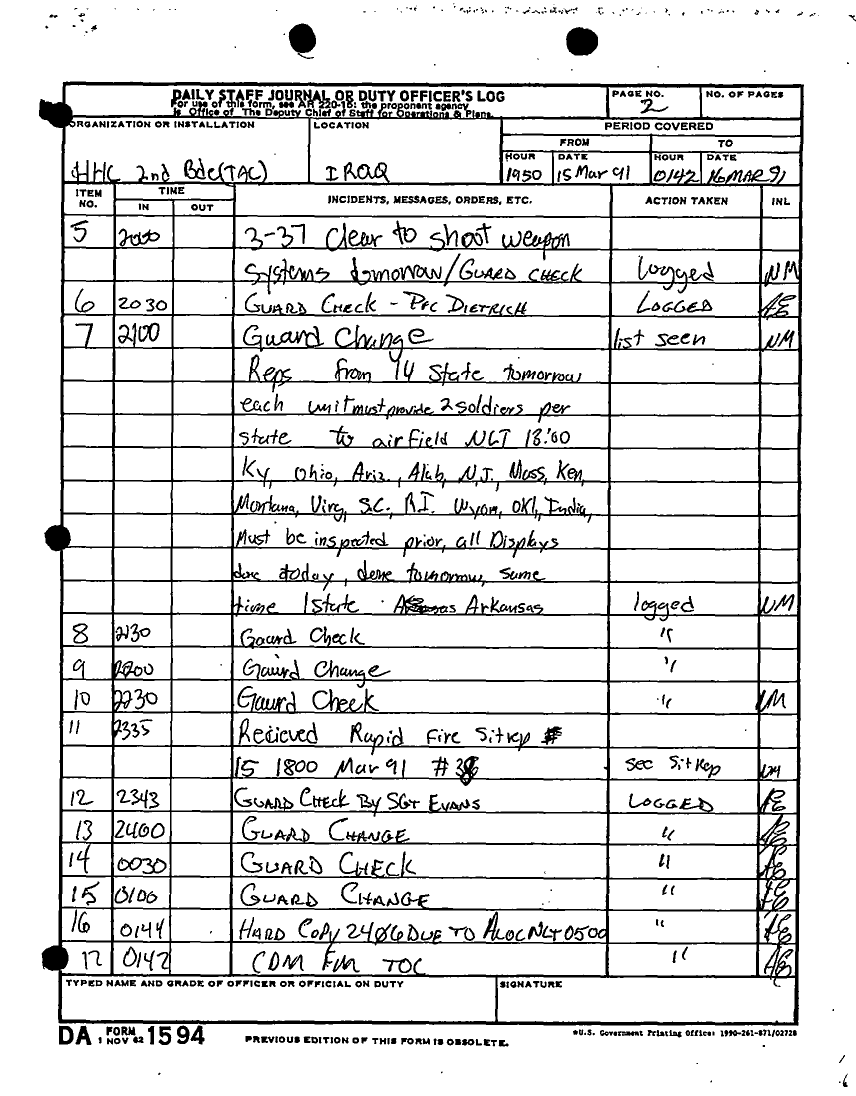 DAILY STAFF JOURNAL OR DUTY OFFICER'S LOG
For use of this form, see AR 220-15: the proponent agency
is Office of The Deputy Chief of Staff for Operations & Plans.
PAGE NO.
2
NO. OF PAGES
ORGANIZATION OR INSTALLATION
HHC 2nd Bde(TAC)
LOCATION
IRAQ
PERIOD COVERED
FROM TO
HOUR DATE HOUR DATE
1950 15 Mar 91 0142 16 MAR 91
ITEM NO. TIME IN OUT INCIDENTS, MESSAGES, ORDERS, ETC. ACTION TAKEN INL
5 2000 3-37 Clear to shoot weapon
systems tomorrow/GUARD CHECK logged NM
6 2030 GUARD CHECK - PFC DIETRICH LOGGED AE
7 2100 Guard Change list seen NM
Reps from 14 State tomorrow
each unit must provide 2 soldiers per
state to airfield NLT 13:00
Ky, Ohio, Ariz., Alab, N.J., Mass, Ken,
Montana, Virg, S.C., R.I. Wyom, OKl, India,
Must be inspected prior, all Displays
done today, done tomorrow, same
time 1 state Arkansas logged NM
8 2130 Gaurd Check "
9 2200 Gaurd Change "
10 2230 Gaurd Check " NM
11 2335 Recieved Rapid Fire Sitrep #
15 1800 Mar 91 # see SitRep NM
12 2343 GUARD CHECK BY SGT EVANS LOGGED AE
13 2400 GUARD CHANGE " AE
14 0030 GUARD CHECK " AE
15 0100 GUARD CHANGE " AE
16 0144 HARD COPY 2406 DUE TO ALOC NLT 0500 " AE
17 0142 CDM FM TOC " AE
TYPED NAME AND GRADE OF OFFICER OR OFFICIAL ON DUTY
SIGNATURE
DA FORM 1 NOV 62 1594
PREVIOUS EDITION OF THIS FORM IS OBSOLETE.
*U.S. Government Printing Office: 1990-261-871/02728